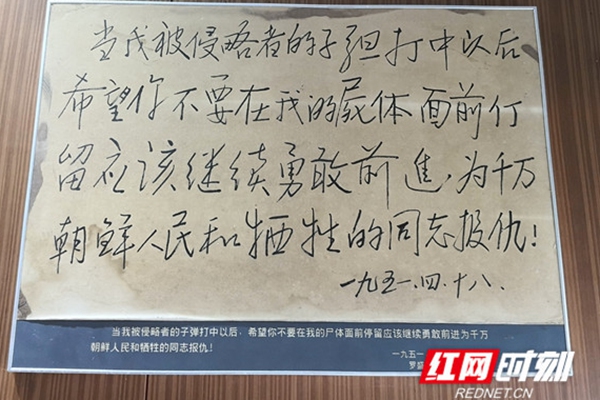 当我被侵略者的子弹打中以后
希望你不要在我的屍体面前停
留应该继续勇敢前進,为千万
朝鲜人民和牺牲的同志报仇!
一九五一.四.十八.
当我被侵略者的子弹打中以后,希望你不要在我的尸体面前停留应该继续勇敢前进为千万
朝鲜人民和牺牲的同志报仇!
一九五一
罗盛
红网时刻
REDNET.CN